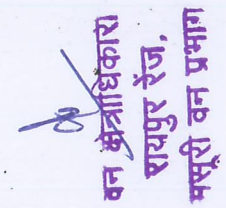 वन क्षेत्राधिकारी
रायपुर रेंज,
मसूरी वन प्रभाग